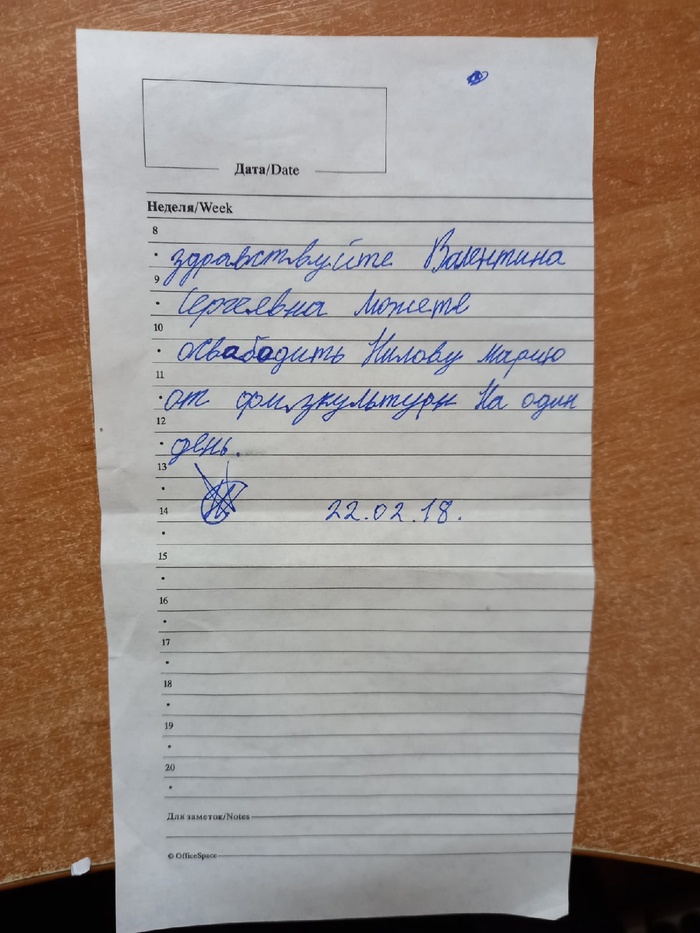 Дата/Date
Неделя/Week
8
здравствуйте Валентина
9
Сергеевна можете
10
освабодить Нилову марию
11
от физкультуры На один
12
день.
13
14
22.02.18.
15
16
17
18
19
20
Для заметок/Notes
© OfficeSpace